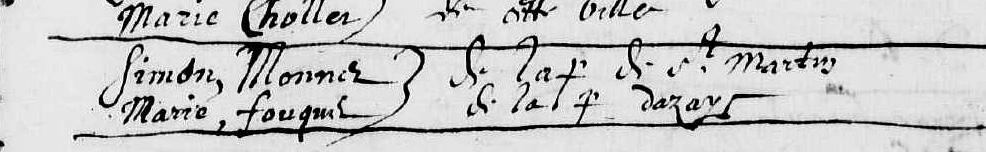 Marie Chollet) de cette ville
Simon Monnet) de la p de st Martin
Marie fouquet) de la p dazay